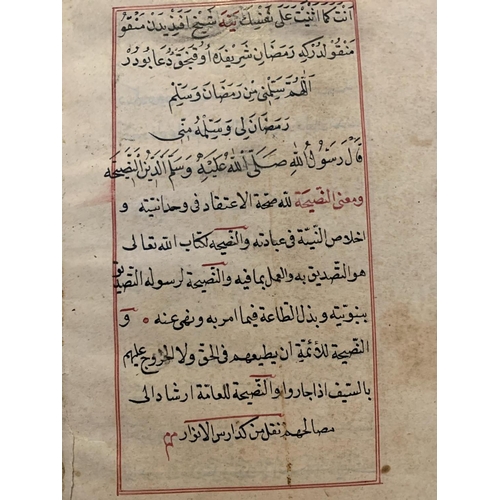 انت كما اثنيت على نفسك ينه شيخ افندیدن منقو
منقولدركه رمضان شريفده اوقنجق دعا بودر
اللهم سلمنى من رمضان وسلم
رمضان لى وسلمه منى
قال رسول الله صلى الله عليه وسلم الدين النصيحة
ومعنى النصيحة لله صحة الاعتقاد فى وحدانيته و
اخلاص النية فى عبادته والنصيحة لكتاب الله تعالى
هو التصديق به والعمل بما فيه والنصيحة لرسوله التصديق
بنبوتيه وبذل الطاعة فيما امر به ونهى عنه و
النصيحة للأئمة ان يطيعهم فى الحق ولا الخروج عليهم
بالسيف اذا جاروا والنصيحة للعامة ارشاد الى
مصالحهم نقل من مدارس الانوار